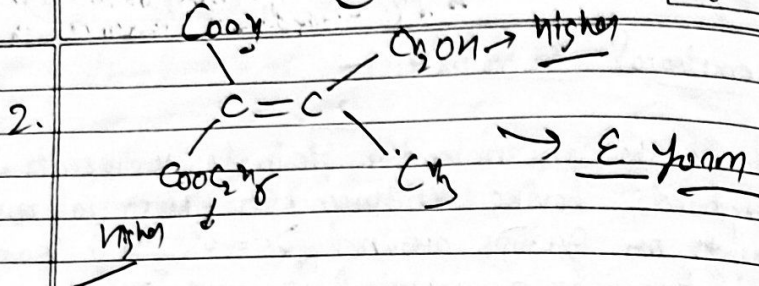 COOH
CH₂OH → Higher
2.
C=C
→ E form
COOC₂H₅
CH₃
Higher